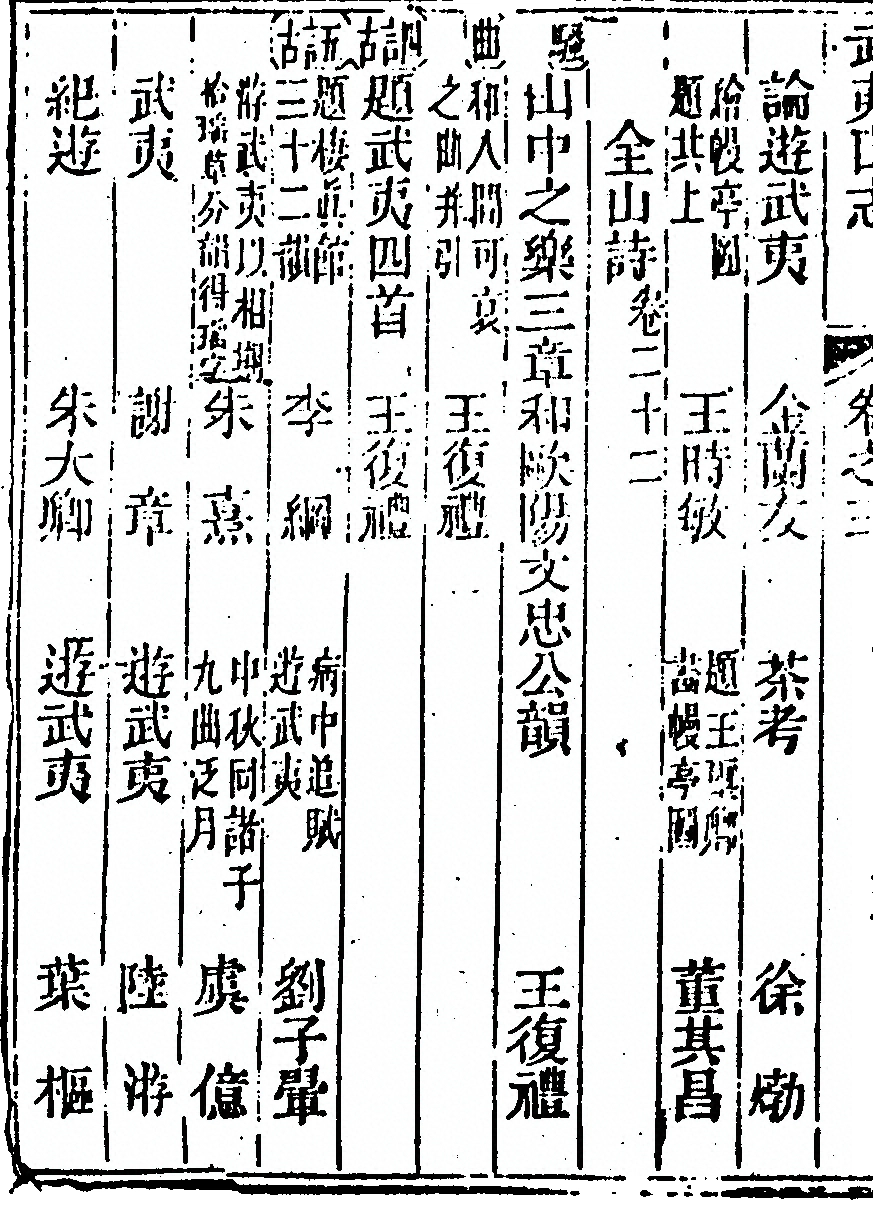 武夷山志 卷之三
論遊武夷 金蘭友 茶考 徐㶿
繪幔亭圖題其上 王時敏 題王璽卿畵幔亭圖 董其昌
全山詩 卷二十二
騷 山中之樂三章和歐陽文忠公韻 王復禮
曲 和人間可哀之曲并引 王復禮
四言古 題武夷四首 王復禮
五言古 題棲眞館三十二韻 李綱 病中追賦遊武夷 劉子翬
游武夷以相期拾瑤草分韻得瑤字 朱熹 中秋同諸子九曲泛月 虞億
武夷 謝章 遊武夷 陸游
紀遊 朱大卿 遊武夷 葉樞